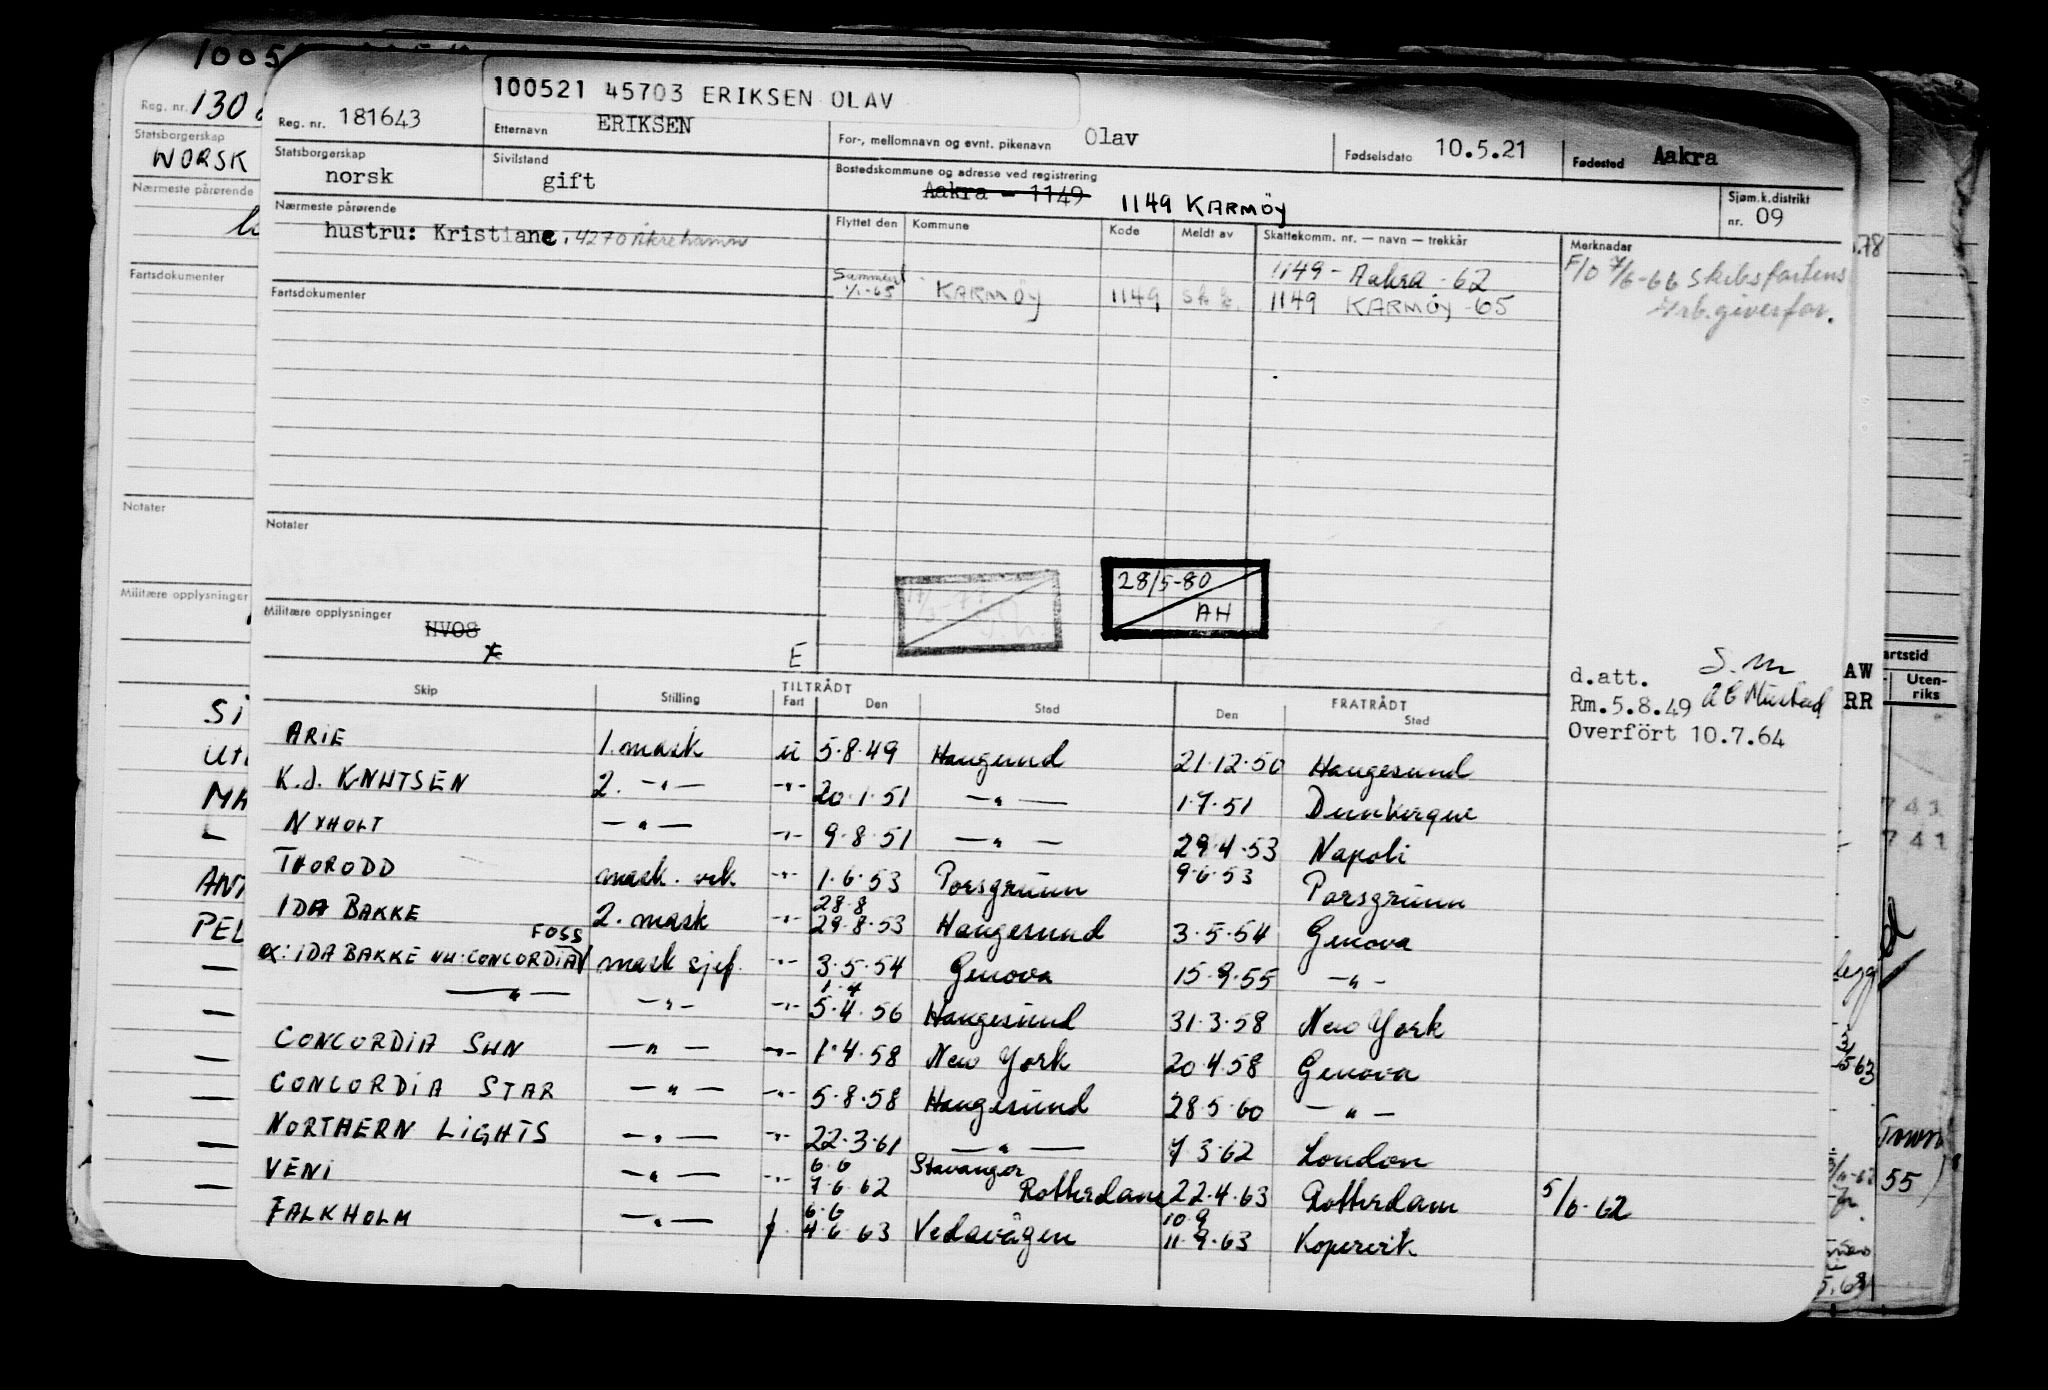 1005
Reg. nr. 130
Statsborgerskap
NORSK
Nærmeste pårørende
Fartsdokumenter
Notater
Militære opplysninger
100521 45703 ERIKSEN OLAV
Reg. nr. 181643 Etternavn ERIKSEN For-, mellomnavn og evnt. pikenavn Olav Fødselsdato 10.5.21 Fødested Aakra
Statsborgerskap norsk Sivilstand gift Bostedskommune og adresse ved registrering Aakra - 1149 1149 KARMÖY Sjøm.k.distrikt nr. 09
Nærmeste pårørende Flyttet den Kommune Kode Meldt av Skattekomm. nr. — navn — trekkår Merknader
hustru: Kristiane, 4270 Åkrehamn
1149 - Aakra - 62 F/O 7/6-66 Skibsfartens
1/1-65 KARMÖY 1149 1149 KARMÖY -65 Arb.giverfor.
Fartsdokumenter
Notater
28/5-80
AH
Militære opplysninger
HVOS
E
d.att. S.m
Rm.5.8.49
Overfört 10.7.64
Skip Stilling TILTRÅDT Fart Den Sted FRATRÅDT Den Sted
ARIE 1. mask u 5.8.49 Haugesund 21.12.50 Haugesund
K.J. KNUTSEN 2. —"— -"- 20.1.51 —"— 1.7.51 Dunkerque
NYHOLT —"— -"- 9.8.51 —"— 29.4.53 Napoli
THORODD mask. vik. -"- 1.6.53 Porsgrunn 9.6.53 Porsgrunn
IDA BAKKE 2. mask -"- 28.8 29.8.53 Haugesund 3.5.54 Genova
ex: IDA BAKKE NU: CONCORDIA FOSS mask sjef. -"- 3.5.54 Genova 15.9.55 —"—
—"— —"— -"- 1.4 5.4.56 Haugesund 31.3.58 New York
CONCORDIA SUN —"— -"- 1.4.58 New York 20.4.58 Genova
CONCORDIA STAR —"— -"- 5.8.58 Haugesund 28.5.60 —"—
NORTHERN LIGHTS —"— -"- 22.3.61 —"— 7.3.62 London
VENI —"— -"- 6.6 7.6.62 Stavanger Rotterdam 22.4.63 Rotterdam 5/6-62
FALKHOLM —"— f 6.6 4.6.63 Vedavågen 10.9 11.9.63 Kopervik
AW
RR
artstid
Uten-
riks
741
741
55)